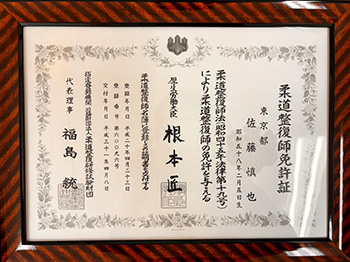 柔道整復師免許証
東京都
佐藤慎也
昭和五十八年二月五日生
柔道整復師法(昭和四十五年法律第十九号)
により柔道整復師の免許を与える
厚生労働大臣
根本匠
柔道整復師名簿に登録し此の証明書を交付する
登録年月日 平成二十年四月二十三日
登録番号 第六〇〇六号
交付年月日 平成三十一年四月八日
指定登録機関 公益財団法人柔道整復研修試験財団
代表理事
福島統